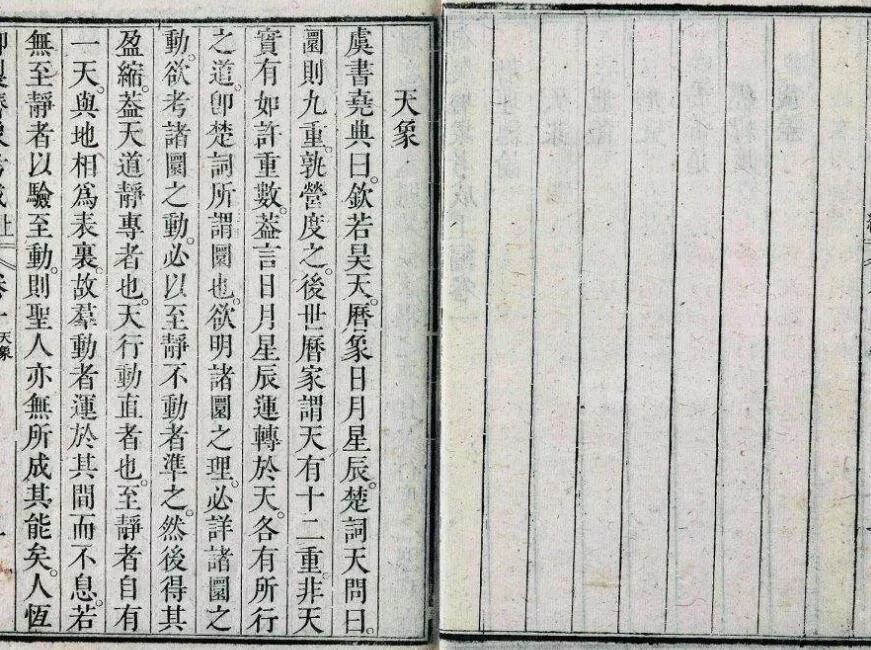 天象
虞書堯典曰。欽若昊天。曆象日月星辰。楚詞天問曰。
圜則九重。孰營度之。後世曆家謂天有十二重。非天
實有如許重數。葢言日月星辰運轉於天。各有所行
之道。卽楚詞所謂圜也。欲明諸圜之理。必詳諸圜之
動。欲考諸圜之動。必以至靜不動者準之。然後得其
盈縮。葢天道靜專者也。天行動直者也。至靜者自有
一天。與地相為表裏。故羣動者運於其間而不息。若
無至靜者以驗至動。則聖人亦無所成其能矣。人恆
天象